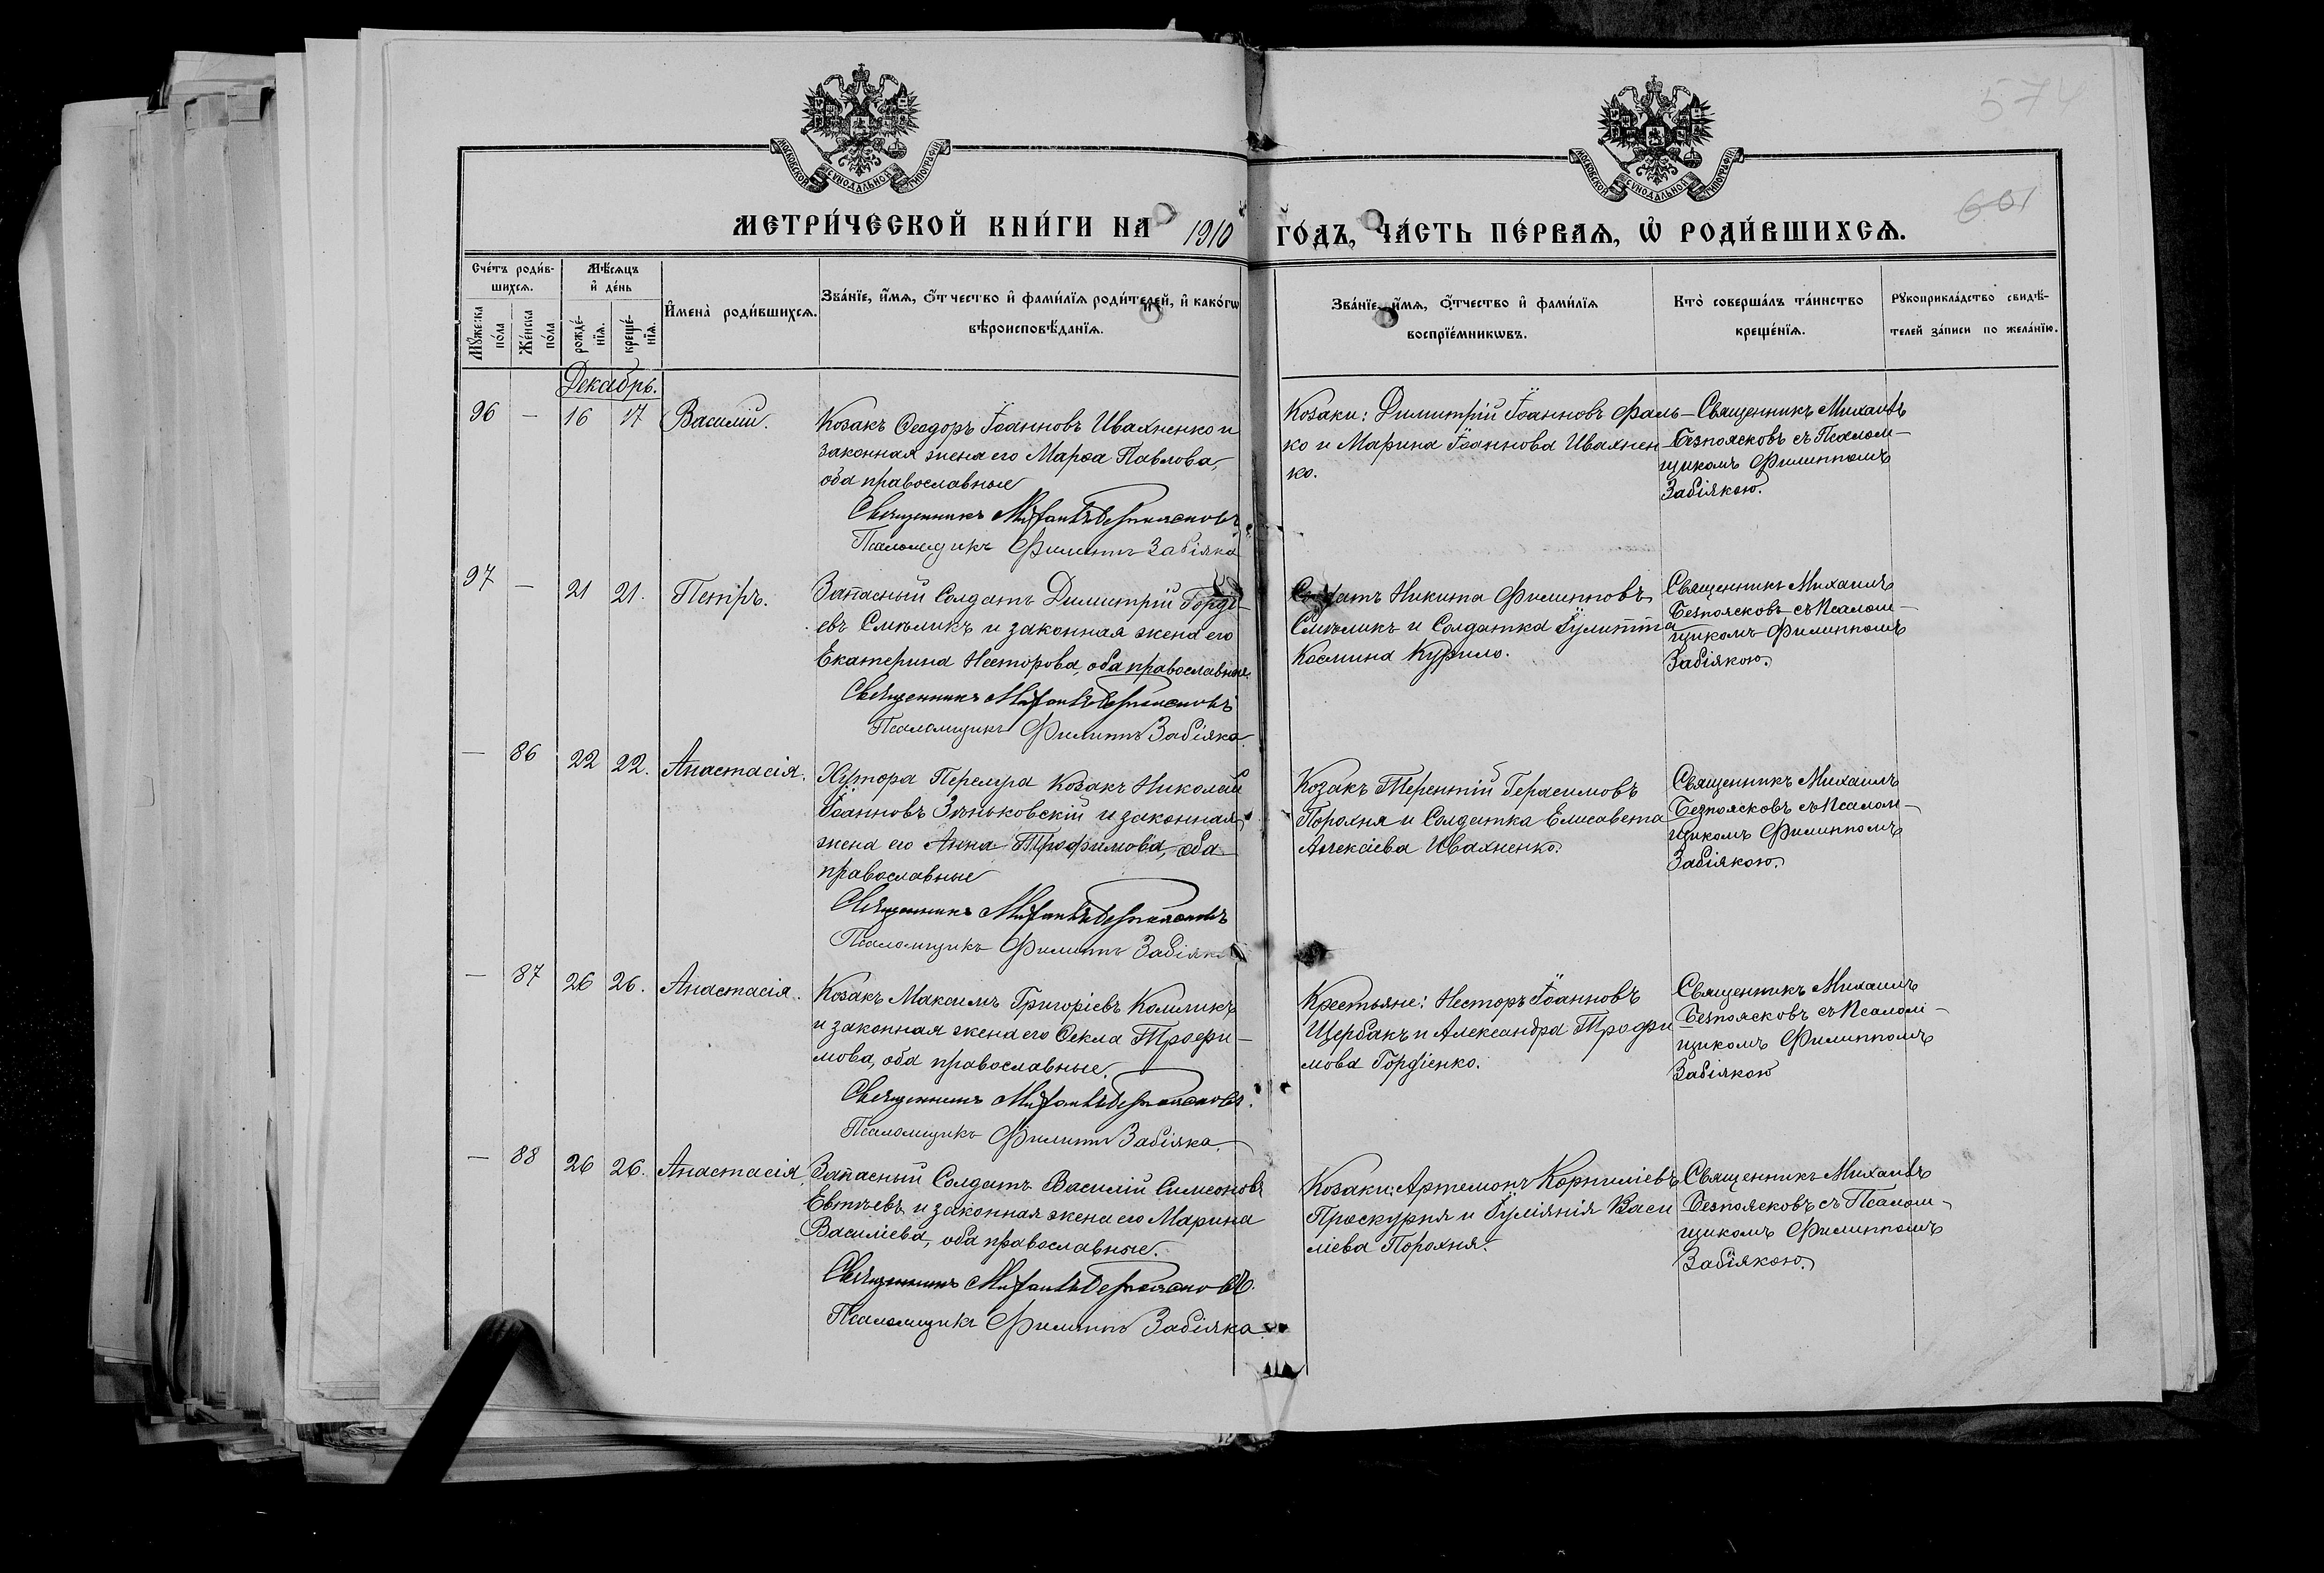 574
601
МОСКОВСКОЙ СѴНОДАЛЬНОЙ ТИПОГРАФІИ
МОСКОВСКОЙ СѴНОДАЛЬНОЙ ТИПОГРАФІИ
МЕТРИ́ЧЕСКОЙ КНИ́ГИ НА 1910 ГО́ДЪ, ЧА́СТЬ ПЕ́РВАѦ, Ѡ҆ РОДИ́ВШИХСѦ.
Сче́тъ роди́в-
шихсѧ.
Мꙋ́жеска по́ла
Же́нска по́ла
Мѣ́сѧцъ
и҆ де́нь
рожде́-
нїѧ.
креще́-
нїѧ.
И҆мена̀ роди́вшихсѧ.
Зва́нїе, и҆́мѧ, ѻ҆́тчество и҆ фами́лїѧ роди́телей, и҆ како́гѡ
вѣроисповѣ́данїѧ.
Зва́нїе, и҆́мѧ, ѻ҆́тчество и҆ фами́лїѧ
воспрїе́мникѡвъ.
Кто̀ соверша́лъ та́инство
креще́нїѧ.
Рꙋкоприкла́дство свидѣ́-
телей за́писи по жела́нїю.
Декабрь.
96 — 16 17 Василій.
Козакъ Ѳеодоръ Іоанновъ Ивахненко и
законная жена его Марѳа Павлова,
оба православные
Священникъ Михаилъ Безпоясковъ
Псаломщикъ Филиппъ Забіяка
Козаки: Димитрій Іоанновъ Фаль-
ко и Марина Іоаннова Ивахнен
ко.
Священникъ Михаилъ
Безпоясковъ съ Псалом-
щикомъ Филиппомъ
Забіякою.
97 — 21 21. Петръ.
Запасный Солдатъ Димитрій Горді-
евъ Смѣликъ и законная жена его
Екатерина Несторова, оба православные.
Священникъ Михаилъ Безпоясковъ
Псаломщикъ Филиппъ Забіяка.
Солдатъ Никита Филипповъ
Смѣликъ и Солдатка Іулитта
Космина Курило.
Священникъ Михаилъ
Безпоясковъ съ Псалом-
щикомъ Филиппомъ
Забіякою.
— 86 22 22. Анастасія.
Хутора Перелура Козакъ Николай
Іоанновъ Зѣньковскій и законная
жена его Анна Трофимова, оба
православные
Священникъ Михаилъ Безпоясковъ
Псаломщикъ Филиппъ Забіяка
Козакъ Терентій Герасимовъ
Порохня и Солдатка Елисавета
Алексіева Ивахненко.
Священникъ Михаилъ
Безпоясковъ съ Псалом-
щикомъ Филиппомъ
Забіякою.
— 87 26 26. Анастасія.
Козакъ Максимъ Григоріевъ Колимкъ
и законная жена его Ѳекла Трофи-
мова, оба православные.
Священникъ Михаилъ Безпоясковъ.
Псаломщикъ Филиппъ Забіяка.
Крестьяне: Несторъ Іоанновъ
Щербакъ и Александра Трофи
мова Гордіенко.
Священникъ Михаилъ
Безпоясковъ съ Псалом-
щикомъ Филиппомъ
Забіякою
— 88 26 26. Анастасія.
Запасный Солдатъ Василій Симеоновъ
Евтѣевъ и законная жена его Марина
Василіева, оба православные.
Священникъ Михаилъ Безпоясковъ.
Псаломщикъ Филиппъ Забіяка.
Козаки: Артемонъ Корниліевъ
Проскурня и Іуліянія Васи
ліева Порохня.
Священникъ Михаилъ
Безпоясковъ съ Псалом-
щикомъ Филиппомъ
Забіякою.